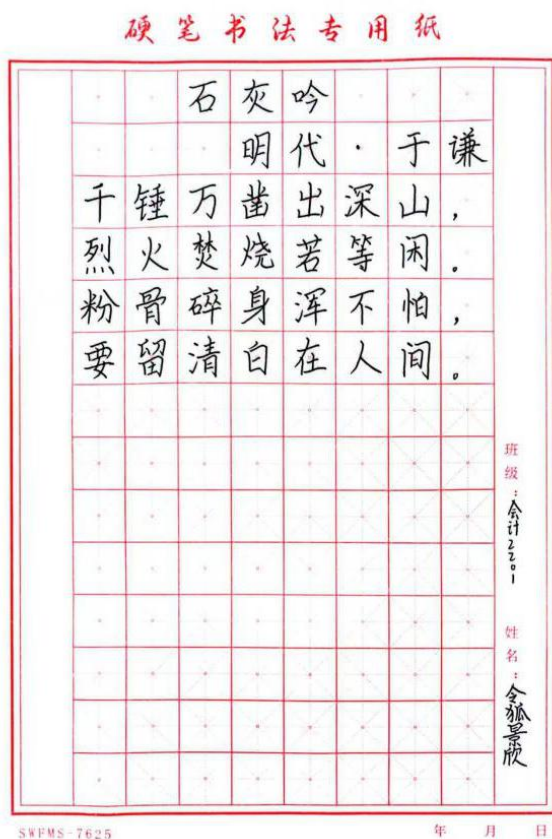 硬笔书法专用纸
石灰吟
明代·于谦
千锤万凿出深山，
烈火焚烧若等闲。
粉骨碎身浑不怕，
要留清白在人间。
班级：会计2201
姓名：令狐景欣
SWFMS-7625
年 月 日